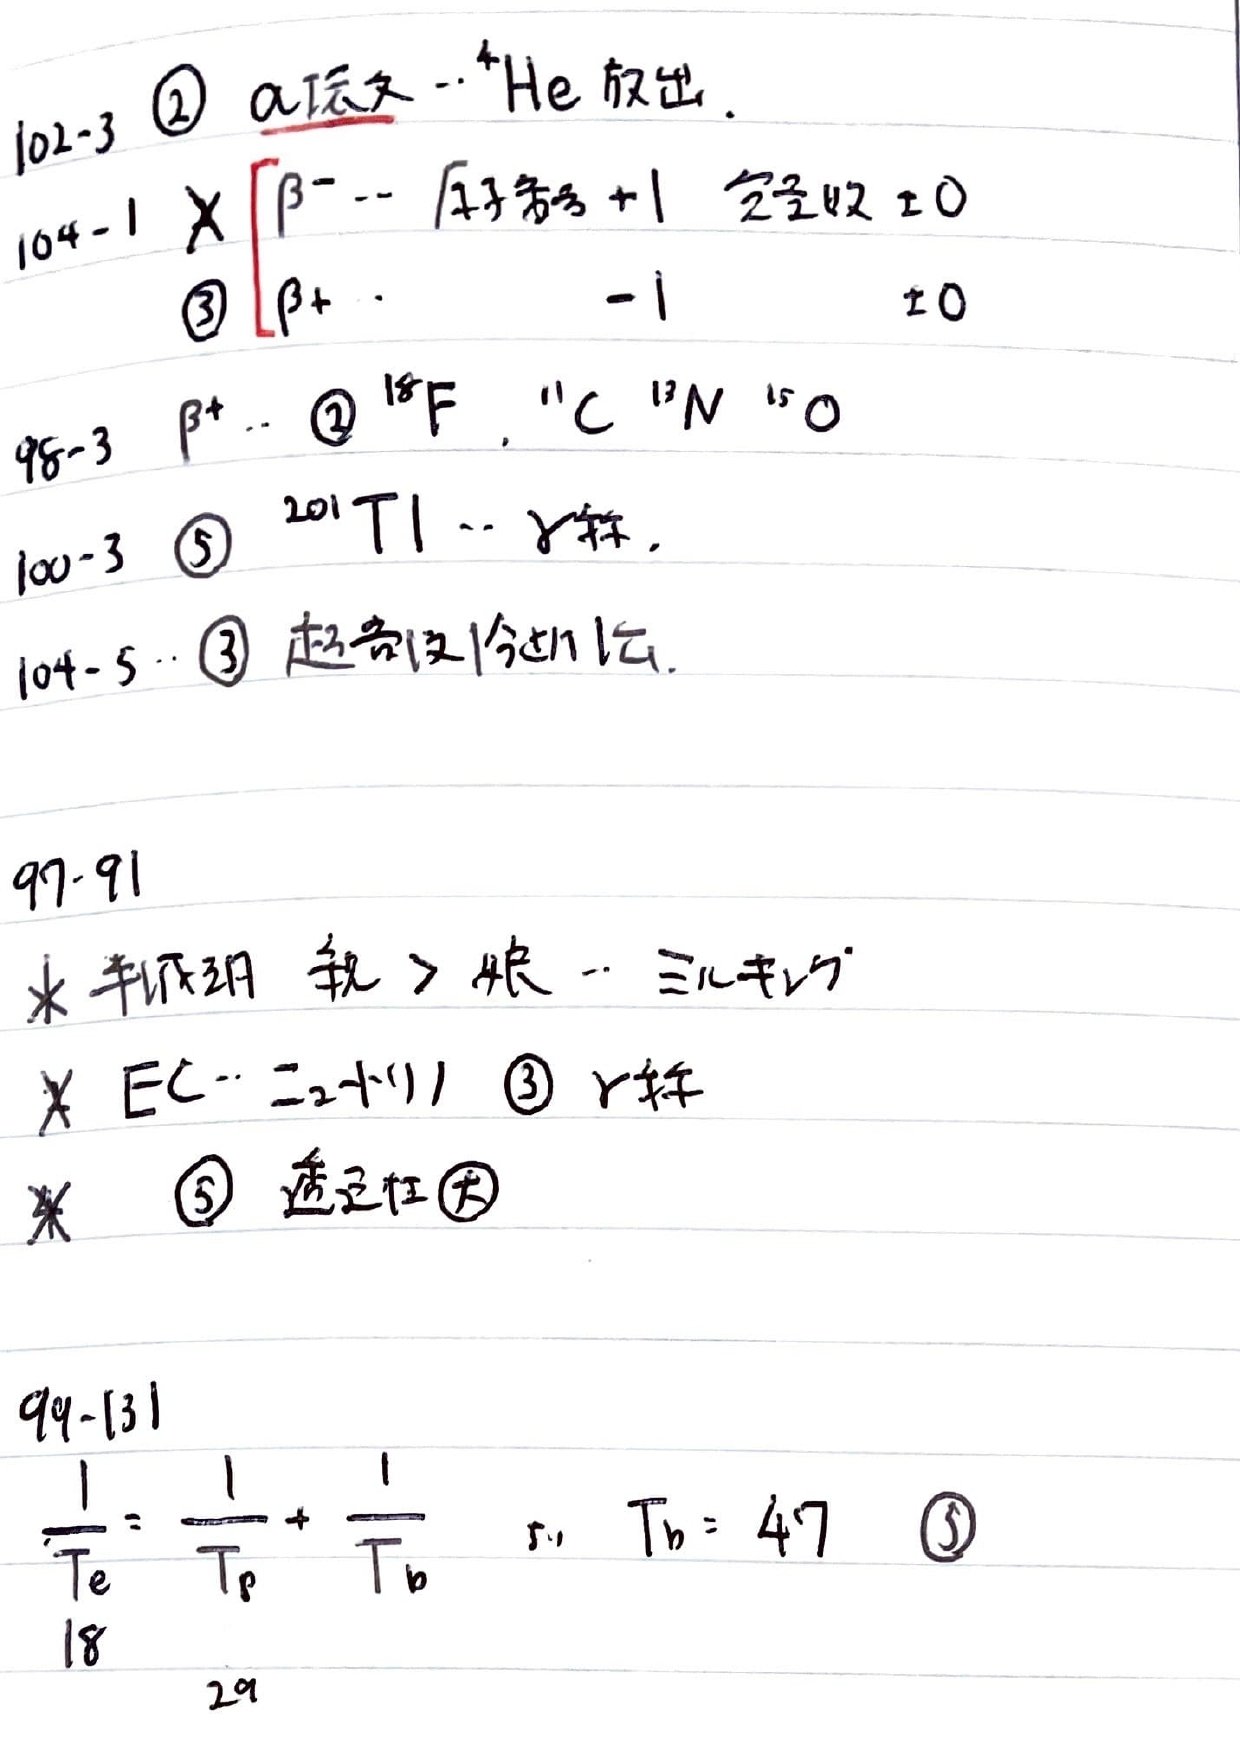 102-3 ② α壊変 ‥ ⁴He 放出.
104-1 β⁻ ‥ 原子番号 +1 質量数 ±0
③ β+ ‥ -1 ±0
98-3 β⁺ ‥ ② ¹⁸F, ¹¹C ¹³N ¹⁵O
100-3 ⑤ ²⁰¹Tl ‥ γ線.
104-5 ‥ ③ 超音波診断法.
97-91
* 半減期 親 > 娘 ‥ ミルキング
EC ‥ ③ γ線
⑤ 透過性 大
99-131
1/Te = 1/Tp + 1/Tb より Tb = 47 ⑤
18
29